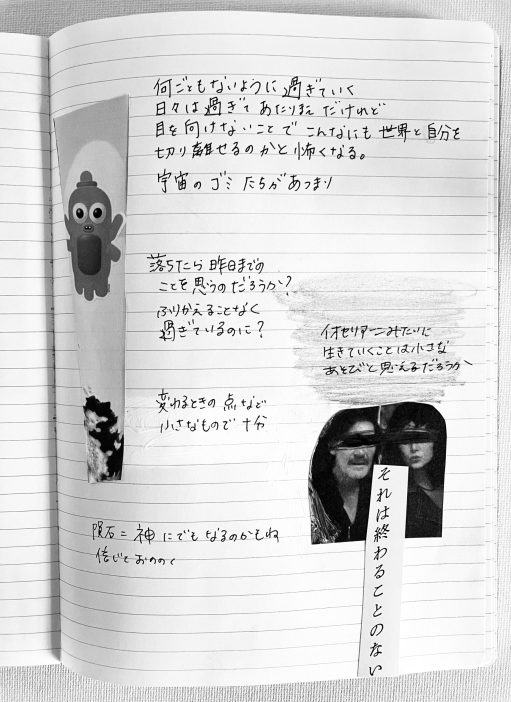 何ごともないように過ぎていく
日々は過ぎてあたりまえだけれど
目を向けないことでこんなにも世界と自分を
切り離せるのかと怖くなる。
宇宙のゴミたちがあつまり
落ちたら昨日までの
ことを思うのだろうか?
ふりかえることなく
過ぎているのに?
イオセリアーニみたいに
生きていくことは小さな
あそびと思えるだろうか
変わるときの点など
小さなもので十分
隕石=神にでもなるのかもね
信じておののく
それは終わることのない